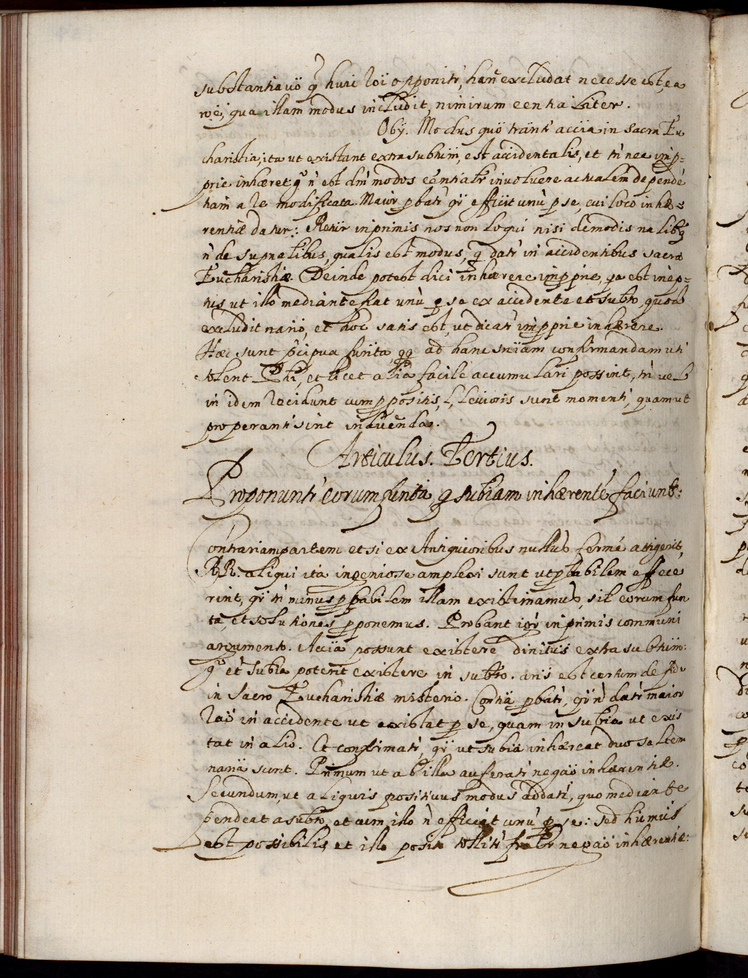 substantiavo q̃ huic loi opponitr, hanc excludat necesse est ea
roe, qua illam modus includit, nimirum eentialiter.
Obij. Modus quo tranti accia in sacra Eu
charistia, ita ut existant extra subtum, est accidentalis, et tn nea imp-
prie inhæret q̃ n est dm modos eentiatr inuoluere actualem depende
tiam a re modificata. Maior pbatr qr efficit unu p se, cui loco inhæ-
rentiæ datur. Retur inprimis nos non loqui nisi de modis nalibq
n de supnalibus, qualis est modus, q datr in accidentibus sacræ
Eucharistiæ. Deinde potest dici inhærere impprie, qa est inep-
tus ut illo mediante fiat unu p se ex accidente et subto, quod
excludit nario, et hoc satis est, ut dicatr impprie inhærere.
Hæc sunt pcipua funta, qq ad hanc sniam confirmandam uti
solent Phi, et licet alia facile accumulari possint, tn uel
in idem recidunt cum ppositis, l leuioris sunt momenti, quam ut
properanti sint induenda.
Articulus. Tertius.
Proponuntr eorum funta q subiam inhærente faciunt:
Contrariam partem et si ex Antiquioribus nullus fermè attigerit,
RR. aliqui ita ingeniose amplexi sunt ut pbabilem effece
rint, qr tn minus pbabilem illam existimamus, sit eorum fun
ta et solutiones pponemus. Probant igr inprimis communi
argumento. Accia possunt existere diuinitus extra subtum:
q̃ et subia poterit existere in subto. ans est certum de fide
in sacro Eucharistiæ misterio. Contia pbatr, qr n datr maior
rao in accidente ut existat p se, quam in subia ut exis
tat in alio. Et confirmatr, qr ut subia inhæreat duo saltem
naria sunt. Primum ut ab illa auferatr negao inhærentiæ.
Secundum, ut aliquis positiuus modus addatr, quo mediante
pendeat a subto, et cum illo n efficiat unu p se: sed huiusmi
est possibilis, et illo posito tollitr negao inhærentiæ: